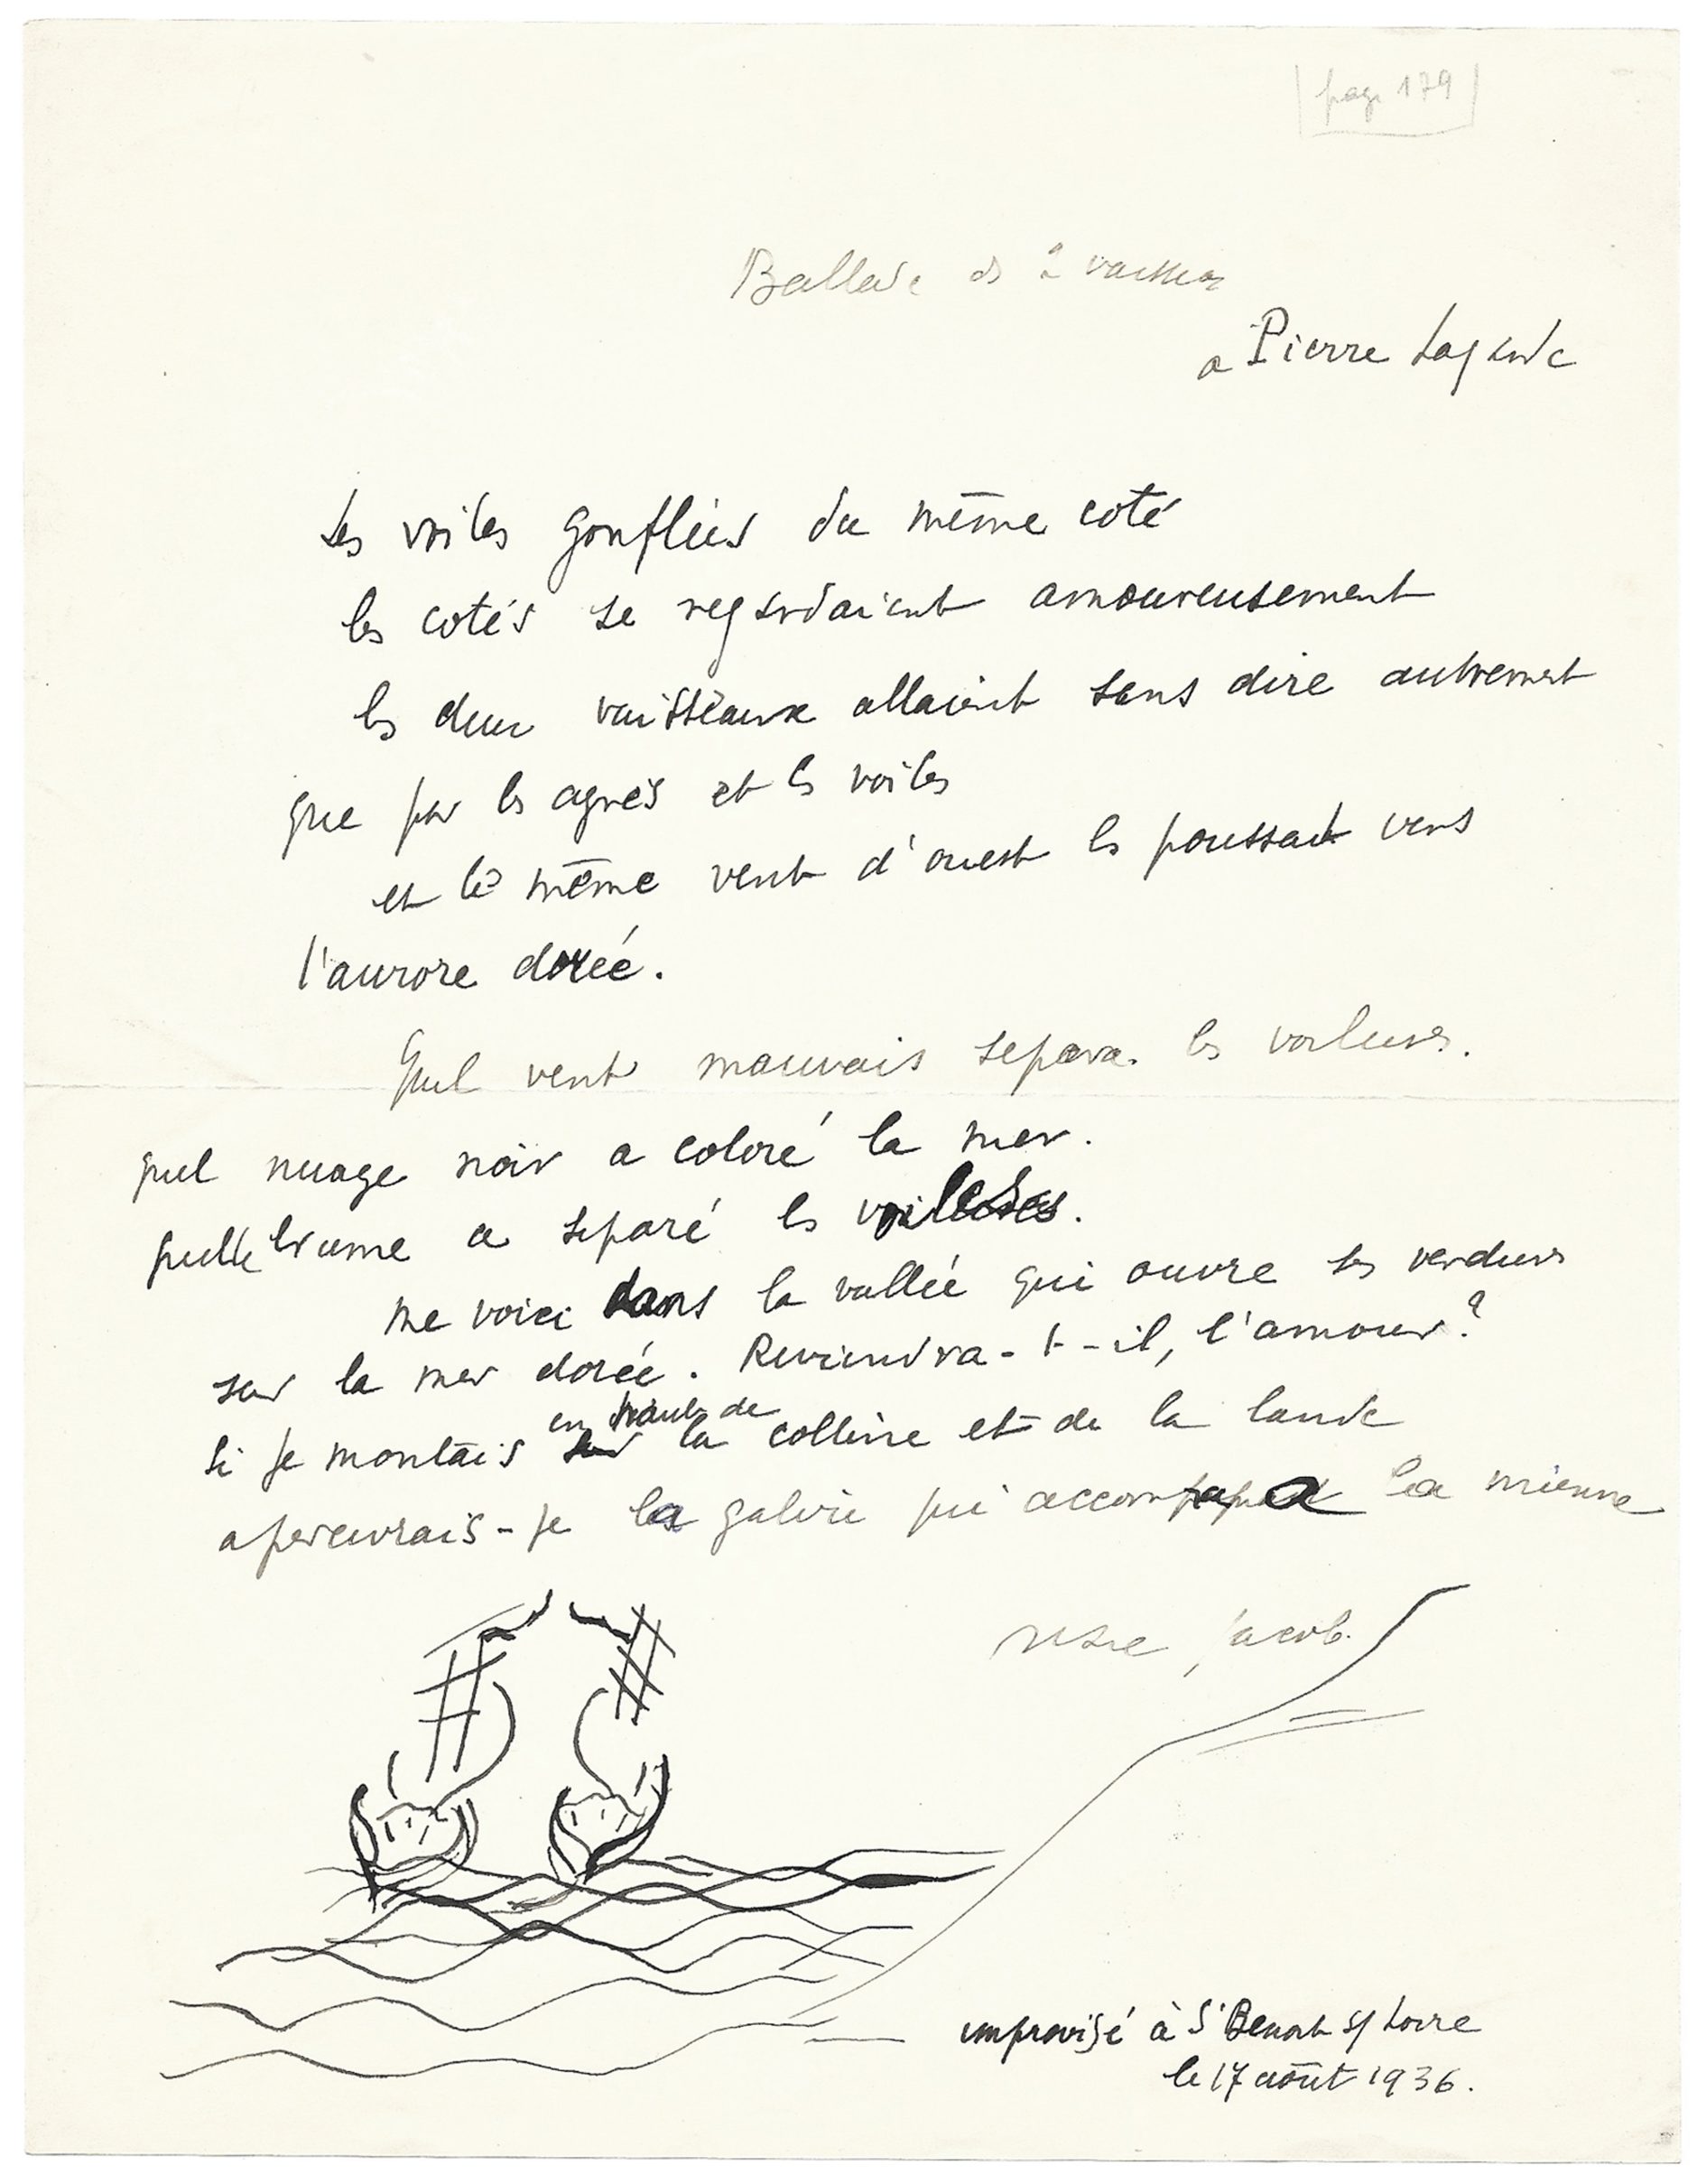 page 179
Ballade des 2 vaisseaux
a Pierre Lagarde
Les voiles gonflées du même coté
les cotés se regardaient amoureusement
les deux vaisseaux allaient sans dire autrement
que par les agrès et les voiles
et le même vent d'ouest les poussait vers
l'aurore dorée.
Quel vent mauvais separa les voiliers.
quel nuage noir a coloré la mer.
quelle brume a separé les
me voici dans la vallée qui ouvre ses verdures
sur la mer dorée. Reviendra-t-il, l'amour?
en haut de
si je montais la colline et de la lande
apercevrais-je la galère qui accompagna la mienne
Jacob.
improvisé à St Benoit s/ Loire
le 17 août 1936.